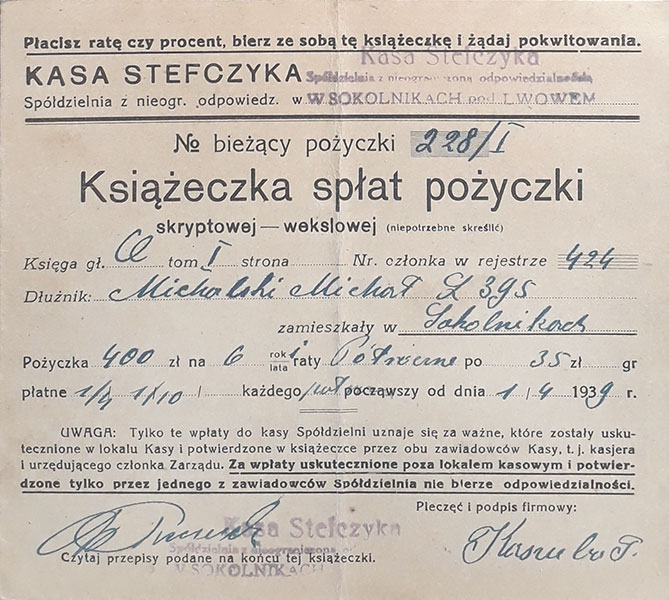 Płacisz ratę czy procent, bierz ze sobą tę książeczkę i żądaj pokwitowania.
Kasa Stefczyka
KASA STEFCZYKA Spółdzielnia z nieograniczoną odpowiedzialnością
Spółdzielnia z nieogr. odpowiedz. w W SOKOLNIKACH pod LWOWEM
№ bieżący pożyczki 228/I
Książeczka spłat pożyczki
skryptowej — wekslowej (niepotrzebne skreślić)
Księga gł. tom I strona Nr. członka w rejestrze 424
Dłużnik: Michalski Michał L 395
zamieszkały w Sokolnikach
Pożyczka 400 zł na 6 rok/lata i raty Półroczne po 35 zł gr
płatne 1/4 1/10 / każdego począwszy od dnia 1/4 1939 r.
UWAGA: Tylko te wpłaty do kasy Spółdzielni uznaje się za ważne, które zostały usku-
tecznione w lokalu Kasy i potwierdzone w książeczce przez obu zawiadowców Kasy, t. j. kasjera
i urzędującego członka Zarządu. Za wpłaty uskutecznione poza lokalem kasowym i potwier-
dzone tylko przez jednego z zawiadowców Spółdzielnia nie bierze odpowiedzialności.
Pieczęć i podpis firmowy:
Kasa Stefczyka
Spółdzielnia z nieograniczoną
Czytaj przepisy podane na końcu tej książeczki.
W SOKOLNIKACH